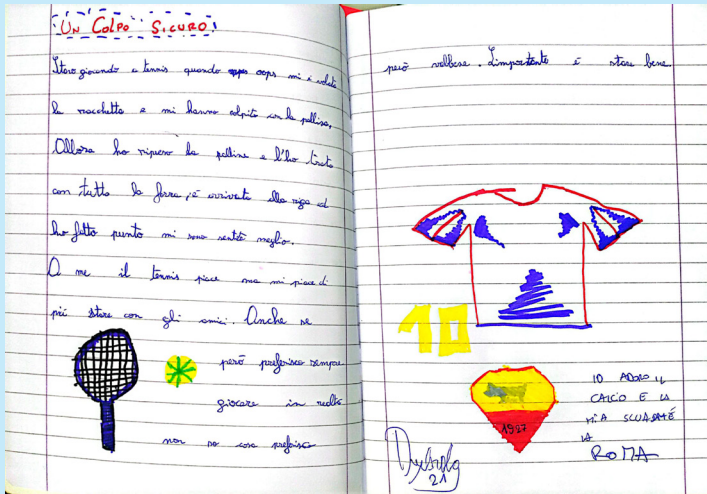 Un Colpo Sicuro!
Stavo giocando a tennis quando oops mi è volata
la racchetta e mi hanno colpito con la pallina,
Allora ho ripreso la pallina e l'ho
con tutta la forza, è arrivata alla riga ed
ho fatto punto mi sono sentito meglio.
A me il tennis piace ma mi piace di
più stare con gli amici. Anche se
però preferisco sempre
giocare in realtà
non so cosa preferisco
però vabbene. L'importante è stare bene.
10
1927
IO ADORO IL
CALCIO E LA
MIA SQUADRA È
LA
ROMA
21